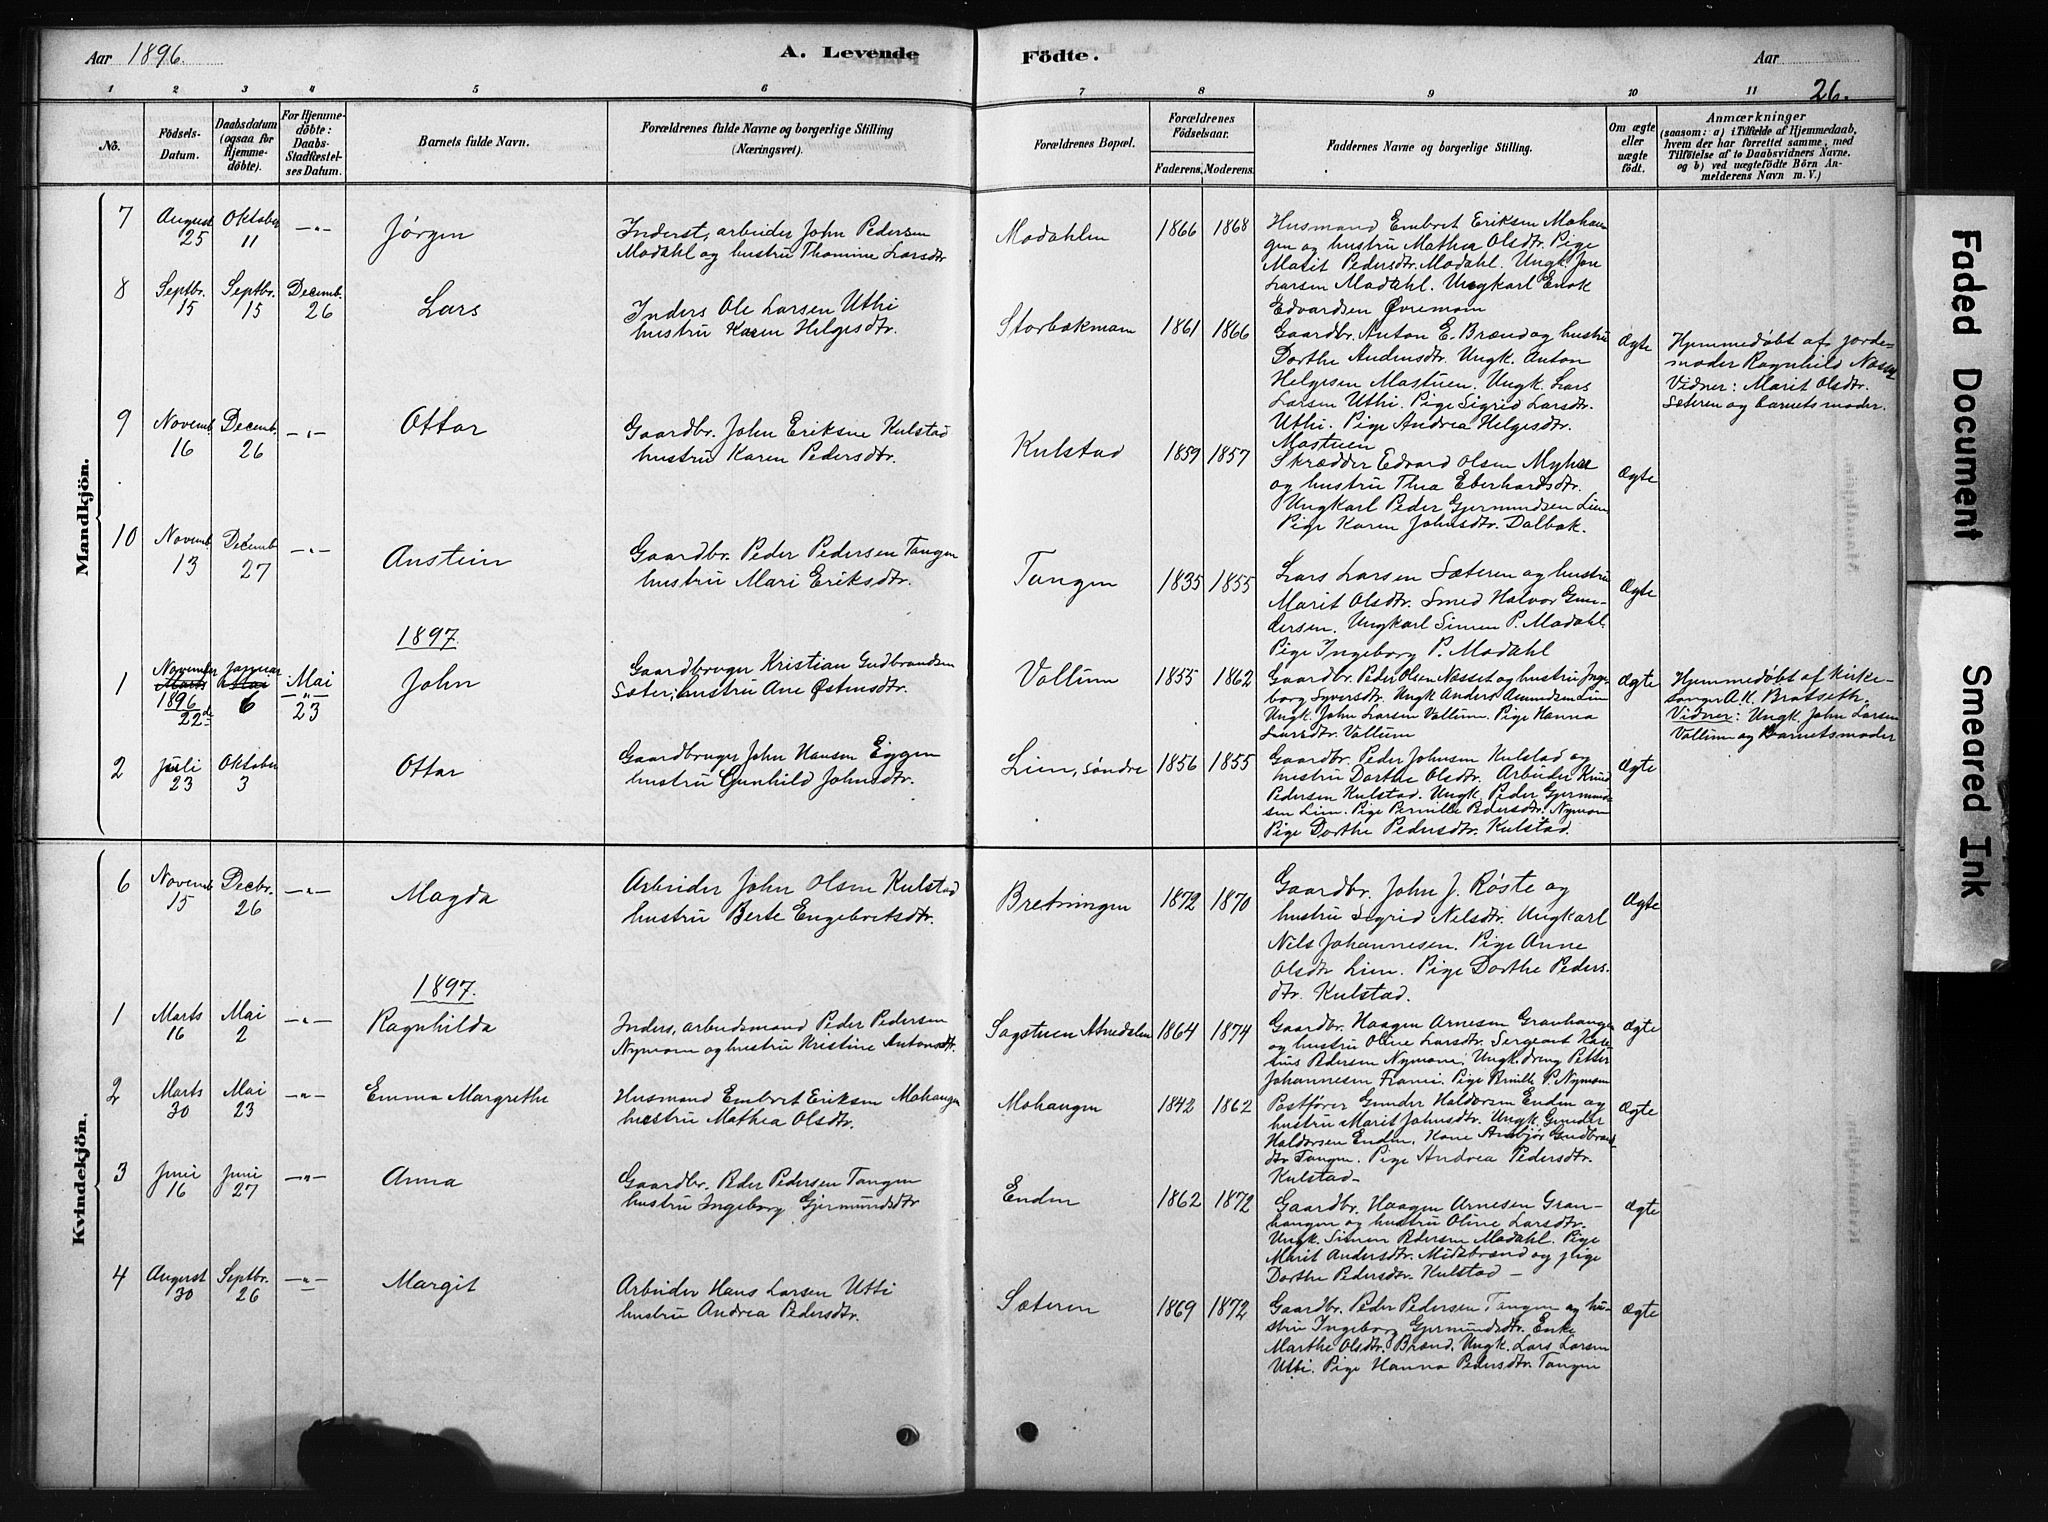 Aar 1896.
A. Levende
Födte.
Aar
26.
1 2 3 4 5 6 7 8 9 10 11
No.
Födsels-
Datum.
Daabsdatum
(ogsaa for
Hjemme-
döbte).
For Hjemme-
döbte:
Daabs-
Stadfæstel-
ses Datum.
Barnets fulde Navn.
Forældrenes fulde Navne og borgerlige Stilling
(Næringsvei).
Forældrenes Bopæl.
Forældrenes
Födselsaar.
Faderens.
Moderens.
Faddernes Navne og borgerlige Stilling.
Om ægte
eller
uægte
födt.
Anmærkninger
(saasom: a) i Tilfælde af Hjemmedaab,
hvem der har forrettet samme, med
Tilföielse af to Daabsvidners Navne,
og b) ved uægtefödte Börn An-
melderens Navn m. V.)
Mandkjön.
7
August
25
Oktober
11
—"—
Jørgen
Inderst, arbeider John Pedersen
Modahl og hustru Thomine Larsdtr
Modahlen
1866
1868
Husmand Embret Eriksen Mohan-
gen og hustru Mathea Olsdtr. Pige
Marit Pedersdtr. Modahl. Ungk. Jon
Larsen Modahl. Ungkarl Enok
Edvardsen Øvremom
8
Septbr.
15
Septbr.
15
Decemb.
26
Lars
Inders Ole Larsen Uthi
hustru Karen Helgesdtr.
Storbækmom
1861
1866
Gaardbr. Anton E. Brænd og hustru
Dorthe Andersdtr. Ungk. Anton
Helgesen Mastuen. Ungk. Lars
Larsen Uthi. Pige Sigrid Larsdtr.
Uthi. Pige Andrea Helgesdtr.
Mastuen
Ægte
Hjemmedøbt af jorde-
moder Ragnhild
Vidner: Marit Olsdtr.
Sæteren og barnets moder.
9
Novemb.
16
Decemb.
26
—"—
Ottar
Gaardbr. John Eriksne Kulstad
hustru Karen Pedersdtr.
Kulstad
1859
1857
Skrædder Edvard Olsen Myhre
og hustru Thea Eberhardtsdtr.
Ungkarl Peder Gjermundsen Lien
Pige Karen Johnsdtr. Dalbak.
Ægte
10
Novemb.
13
Decemb.
27
—"—
Anstein
Gaardbr. Peder Pedersen Tangen
hustru Mari Eriksdtr.
Tangen
1835
1855
Lars Larsen Sæteren og hustru
Marit Olsdtr. Smed Halvor Gun-
dersen. Ungkarl Simen P. Modahl.
Pige Ingeborg P. Modahl
Ægte
1897.
1
November
Marts
1896
22de
Januar
6
Mai
—"—
23
John
Gaardbruger Kristian Gudbrandsen
Sæter, hustru Ane Østensdtr.
Vollum
1855
1862
Gaardbr. Peder Olsen Nasset og hustru Inge-
borg Syversdtr. Ungk Anders Amundsen Lien
Ungk. John Larsen Vollum. Pige Hanna
Larsdtr. Vollum
Ægte
Hjemmedøbt af kirke-
sanger A.K. Bratseth,
Vidner: Ungk. John Larsen
Vollum og Barnets moder
2
Juli
23
Oktober
3
Ottar
Gaardbruger John Hansen Eggen
hustru Gunhild Johnsdtr.
Lien, söndre
1856
1855
Gaardbr. Peder Johnsen Kulstad og
hustru Dorthe Olsdtr. Arbeider Knud
Pedersen Kulstad. Ungk. Peder Gjermund-
sen Lien. Pige Pernille Pedersdtr. Nymom
Pige Dorthe Pedersdtr. Kulstad.
Ægte
Kvindekjön.
6
Novemb.
15
Decbr.
26
—"—
Magda
Arbeider John Olsne Kulstad
hustru Berte Engebretsdtr.
Bretningen
1872
1870
Gaardbr. John J. Røste og
hustru Sigrid Nelsdtr. Ungkarl
Nils Johannesen. Pige Anne
Olsdtr Lien. Pige Dorthe Peders-
dtr. Kulstad.
Ægte
1897.
1
Marts
16
Mai
2
—"—
Ragnhilda
Inders, arbeidsmand Peder Pedersen
Nymom og hustru Kristine Antonsdtr.
Sagstuen Atnedalen
1864
1874
Gaardbr. Haagen Arnesen Granhangen
og hustru Oline Larsdtr. Sergeant
Pedersen Nymom. Ungk. dreng Petter
Johannesen Pige P. Nymom
Ægte
2
Marts
30
Mai
23
—"—
Emma Margrethe
Husmand Embret Eriksen Mohangen
hustru Mathea Olsdtr.
Mohangen
1842
1862
Postfører Gunder Haldorsen Enden og
hustru Marit Johnsdtr. Ungk. Gunder
Haldorsen Enden. Kone Gudbrands-
dtr Tangen. Pige Andrea Pedersdtr.
Kulstad—
Ægte
3
Juni
16
Juni
27
—"—
Anna
Gaardbr. Peder Pedersen Tangen
hustru Ingeborg Gjermundsdtr
Enden
1862
1872
Gaardbr. Haagen Arnesen Gran-
hangen og hustru Oline Larsdtr.
Ungk. Simen Pedersen Modahl. Pige
Marit Andersdtr. Midtbrænd og pige
Dorthe Pedersdtr. Kulstad —
Ægte
4
August
30
Septbr.
26
—"—
Margit
Arbeider Hans Larsen Utti
hustru Andrea Pedersdtr.
Sæteren
1869
1872
Gaardbr. Peder Pedersen Tangen og hu-
stru Ingeborg Gjermundsdtr. Enke
Marthe Olsdtr. Brænd. Ungk. Lars Larsen
Utti. Pige Hanna Pedersdtr. Tangen
Ægte
Faded Document
Smeared Ink